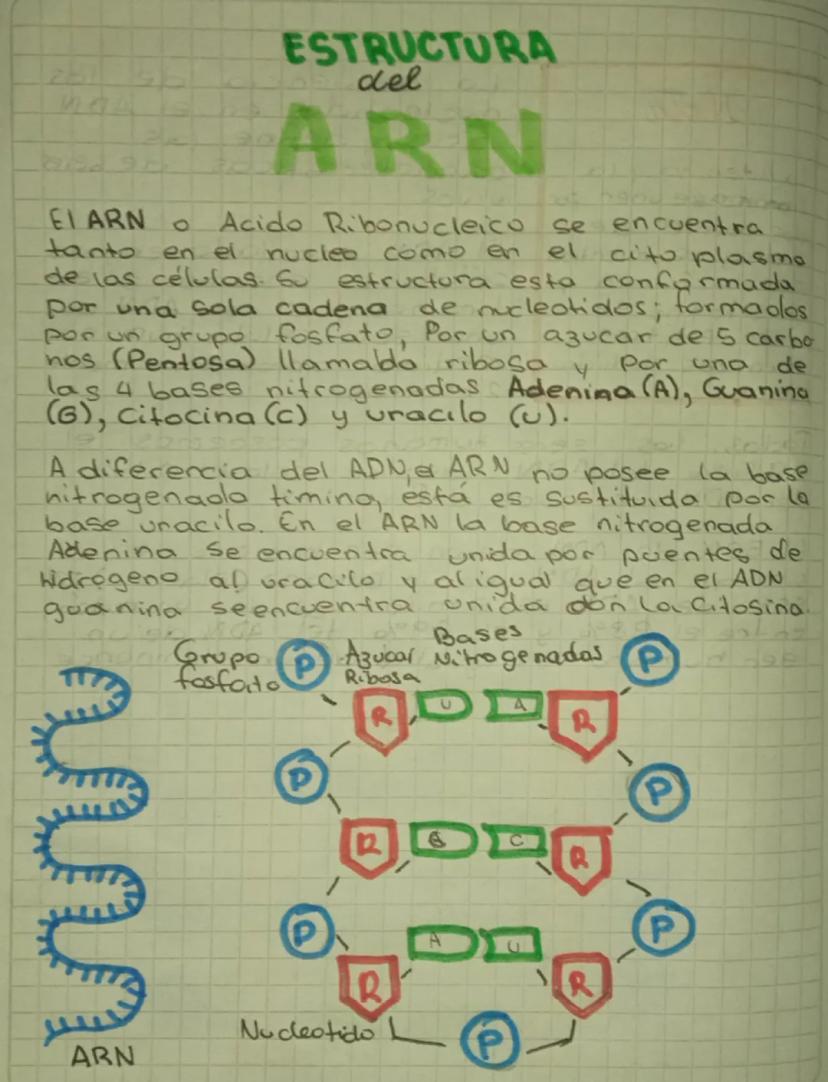 ESTRUCTURA
del
ARN
El ARN o Acido Ribonucleico se encuentra
tanto en el nucleo como en el cito plasma
de las células. Su estructura esta conformada
por una sola cadena de nucleotidos; formados
por un grupo fosfato, Por un azucar de 5 carbo
nos (Pentosa) llamada ribosa y por una de
las 4 bases nitrogenadas Adenina (A), Guanina
(G), Citocina (C) y uracilo (U).
A diferencia del ADN, el ARN no posee la base
nitrogenada timina, está es sustituida por la
base uracilo. En el ARN la base nitrogenada
Adenina se encuentra unida por puentes de
Hidrógeno al uracilo y al igual que en el ADN
guanina se encuentra unida con la Citosina
Grupo fosfato
P
Azucar Ribosa
Bases Nitrogenadas
P
R U A R
P P
R G C R
P P
R A U R
Nucleotido
P
ARN